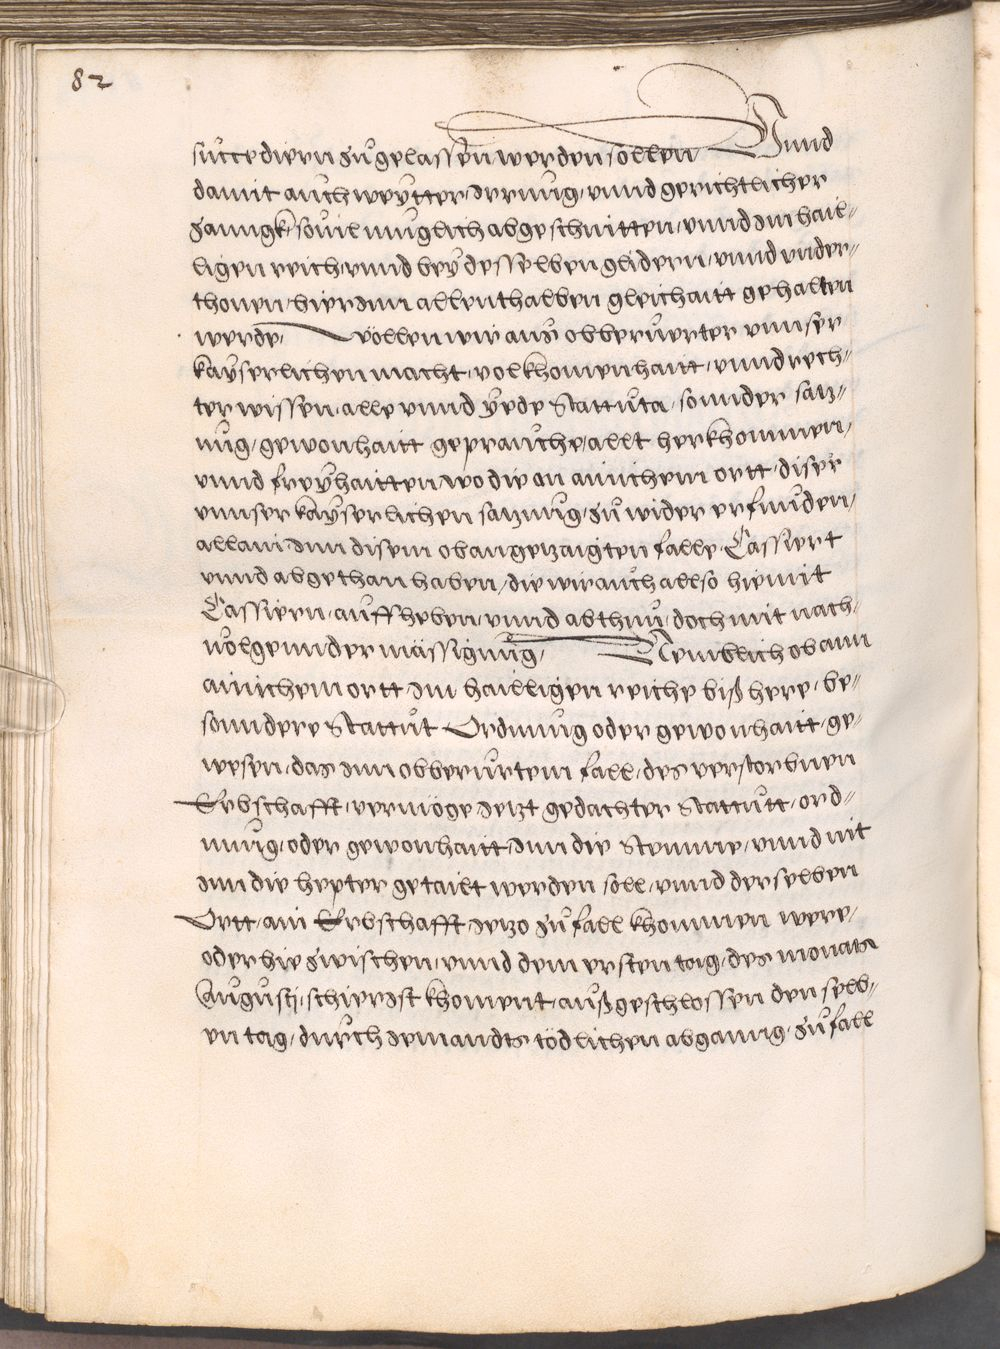 82
succediern zugelassen werden sollen Vnnd
damit auch weytter Jerrung, vnnd gerichtlicher
Zanngk, souil muglich abgeschnitten, vnnd Jm hail-
ligen reich, vnnd bey desselben glidern, vnnd vnder-
thonen, hierJnn allenthalben gleichaitt gehalten
werde, wöllen wir aus obberuerter vnnser
kayserlichen macht, volkhomenhaitt, vnnd rech-
ter wissen, alle vnnd yede Stattuta, sonnder saz-
ung, gewonhaitt geprauche, allt herkhommen,
vnnd freyhaitten, wo die an ainichem ortt, diser
vnnser kayserlichen sazung, zuwider erfunden,
allain Jnn disem obangezaigten falle, Cassiert
vnnd abgethan haben, die wir auch allso hiemit
Cassiern, auffheben, vnnd abthun, doch mit nach-
uolgennder mässigung, Nemblich ob ann
ainichem ortt Jm hailligen reiche biß here, be-
sonndere Stattut Ordnung oder gewonhaitt, ge-
wesen, das Jnn obberurtem fall, des verstorbnen
Erbschafft, vermöge Jetzt gedachter Stattutt, ord-
nung, oder gewonhaitt, Jnn die Stemme, vnnd nit
Jnn die hepter getailt werden soll, vnnd derselben
Ortt, ain Erbschafft Jezo zufall khommen were,
oder hiezwischen, vnnd dem ersten tag, des monats
Augustj, schierJst khoment, außgeschlossen denselb-
en tag, durch Jemandts tödlichen abganng, zufall